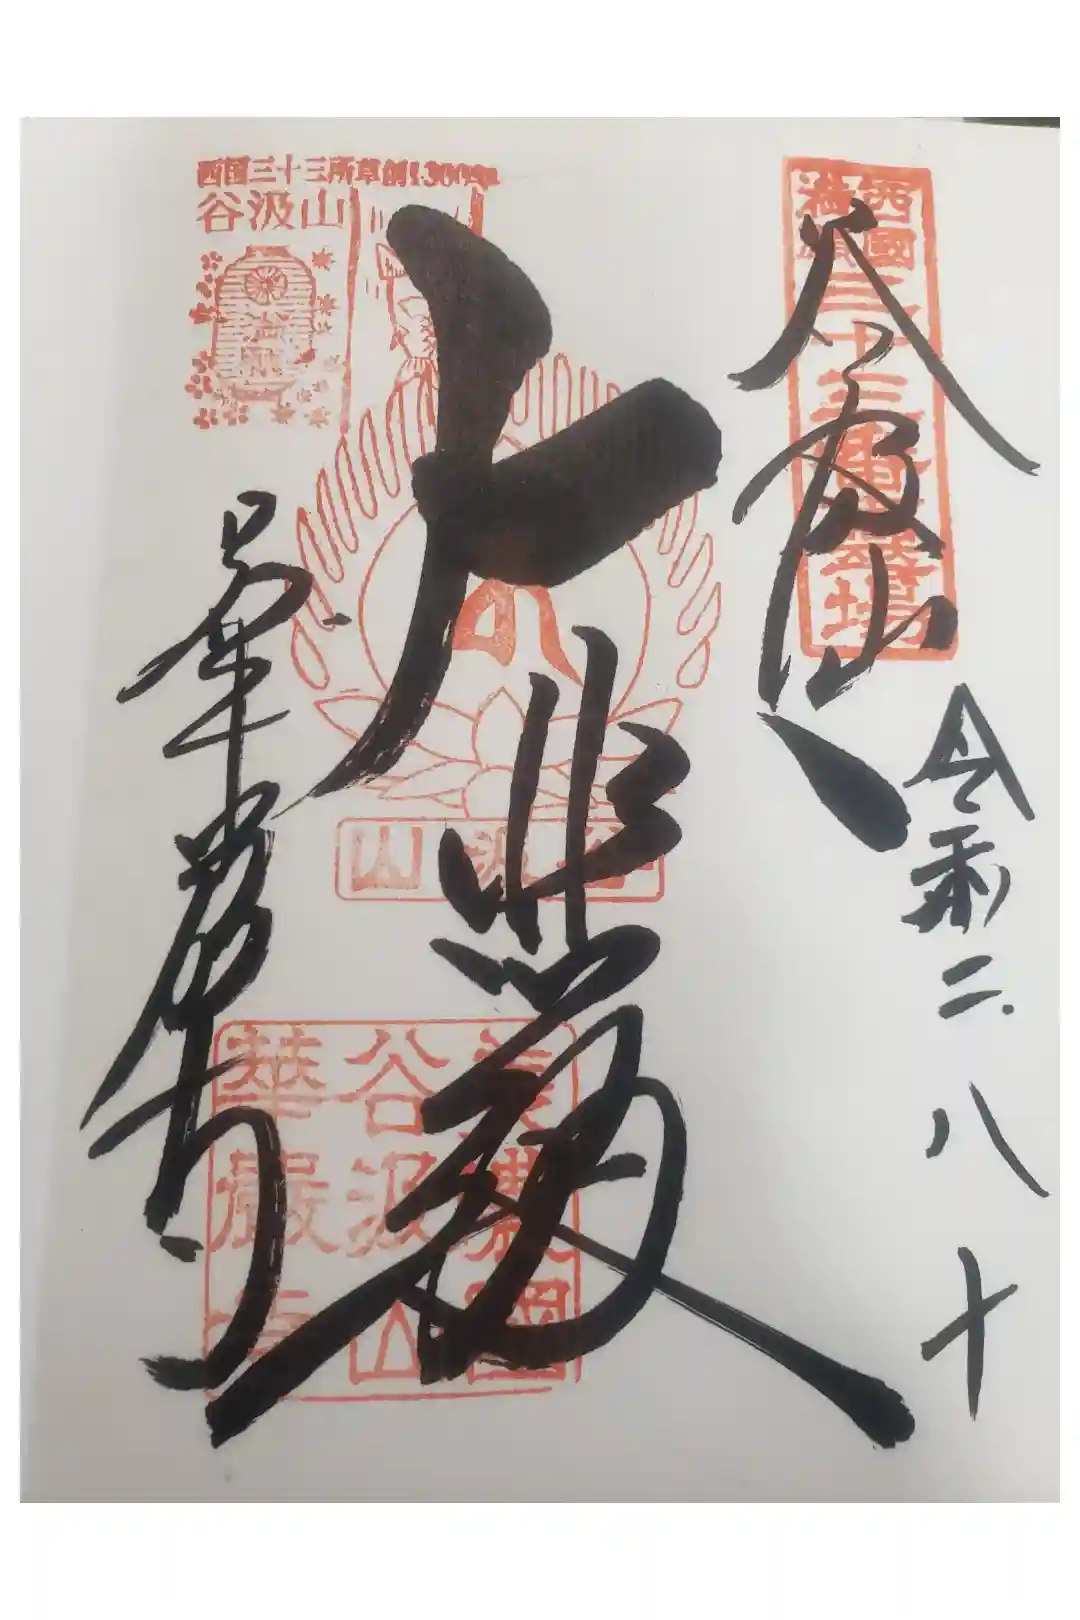 西国三十三所草創1300年
谷汲山
西國
満願
三十三番霊場
谷汲山
令和二 八 十
大悲殿
谷汲山
美濃國
谷汲山
華嚴寺
華厳寺